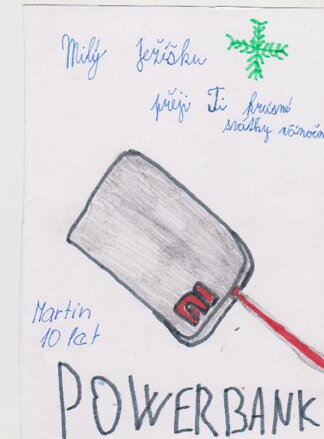 Milý Ježíšku
přeji Ti krásné
svátky vánoční
mi
Martin
10 let
POWERBANK